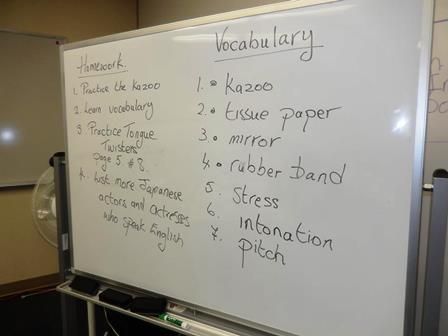 Homework.
1. Practice the Kazoo
2. Learn vocabulary
3. Practice Tongue
Twisters
page 5 # 8.
4. List more Japanese
actors and actresses
who speak English
Vocabulary
1. • Kazoo
2. • tissue paper
3. • mirror
4. • rubber band
5. Stress
6. intonation
7. pitch